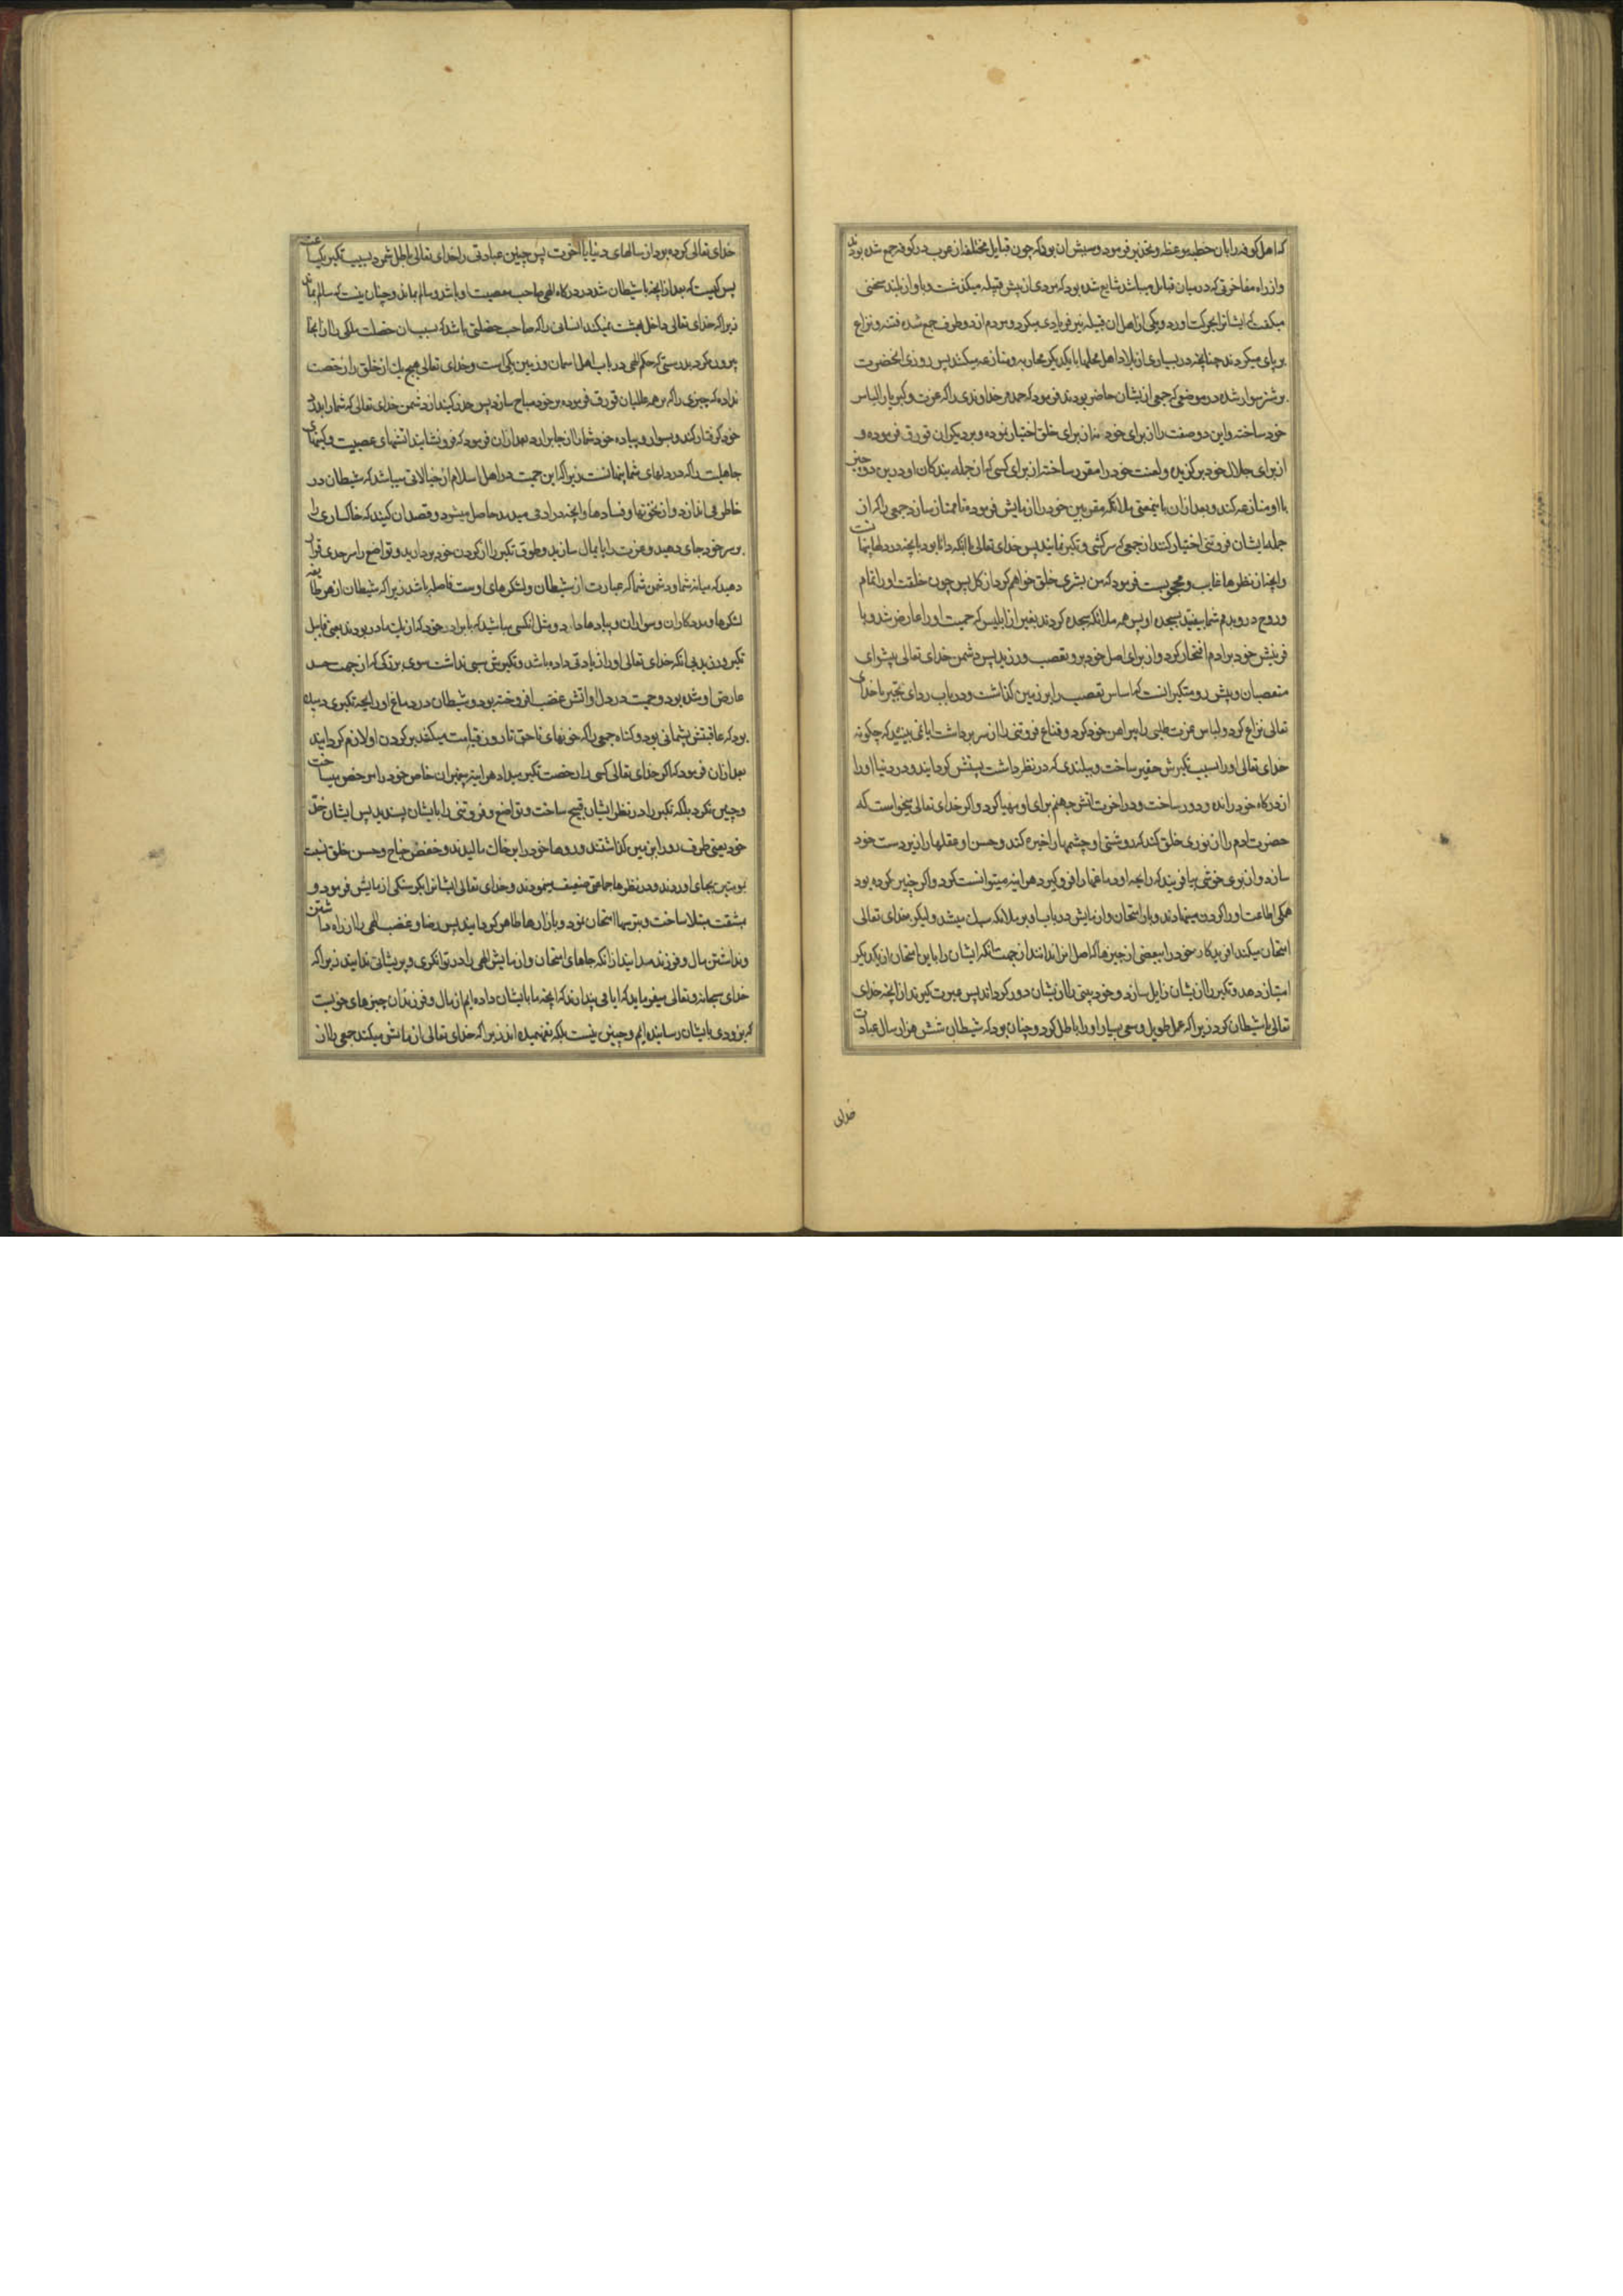 که اهل کوفه را بان خطبه موعظه و تحذیر فرمود و سببش ان بود که چون قبایل مختلفه از عرب در کوفه جمع شده بودند
و از راه مفاخرتی که در میان قبایل میباشد شایع شده بود که مردی از پیش قبیله میگذشت و باواز بلند سخنی
میگفت که ایشانرا بحرکت اورد و یکی از اهل ان قبیله نیز فریادی میکرد و مردم از دو طرف جمع شده فتنه و نزاع
بر پای میکردند چنانچه در بسیاری از بلاد اهل محلها با یکدیگر محاربه و منازعه میکنند پس روزی انحضرت
بر شتر سوار شده در موضعی که جمعی از ایشان حاضر بودند فرمود که حمد مر خداوندی را که عزت و کبریا را لباس
خود ساخته و این دو صفت را از برای خود نه از برای خلق اختیار نموده و بر دیکران قورق فرموده و
از برای جلال خود برگزیده و لعنت خود را مقرر ساخته از برای کسی که از جمله بندکان او درین دو چیز
با او منازعه کند و بعد ازان باینمعنی ملائکه مقربین خود را ازمایش فرموده تا ممتاز سازد جمعی را که از
جمله ایشان فروتنی اختیار کنند از جمعی که سرکشی و تکبر نمایند پس خدای تعالی با انکه دانا بود بانچه در دلها پنهانست
و انچه از نظرها غایب و محجوبست فرمود که من بشری خلق خواهم کرد از کل پس چون خلقت او را تمام
و روح درو بدم شما بیفتید بسجده او پس همه ملائکه سجده کردند بغیر از ابلیس که حمیت او را عارض شد و با
فرینش خود بر ادم افتخار کرد و از برای اصل خود برو تعصب ورزید پس دشمن خدای تعالی پیشوای
متعصبان و پیش رو متکبرانست که اساس تعصب را بر زمین گذاشت و در باب ردای تجبر با خدای
تعالی نزاع کرد و لباس عزت طلبی را پیراهن خود کرد و قناع فروتنی را از سر برداشت ایا نمی بینید که چکونه
خدای تعالی او را بسبب تکبرش حقیر ساخت و ببلندی که در نظر داشت پستش کردانید و در دنیا او را
از درکاه خود رانده و دور ساخت و در اخرت اتش جهنم برای او مهیا کرد و اکر خدای تعالی میخواست که
حضرت ادم را از نوری خلق کند که روشنی او چشمها را خیره کند و حسن او عقلها را زیردست خود
سازد و از بوی خوشی بیافریند که رایحه او دماغها را فروکیرد هر اینه میتوانست کرد و اکر چنین کرده بود
همکی اطاعت او را کردن مینهادند و بار امتحان و ازمایش در باب او بر ملائکه سبک میشد ولیکن خدای تعالی
امتحان میکند افریدکار خود را ببعضی از چیزها که اصل انرا ندانند از جهت انکه ایشان را باین امتحان از یکدیگر
امتیاز دهد و تکبر را از یشان زایل سازد و خود بینی را از یشان دور کرداند پس عبرت کیرید از انچه خدای
تعالی با شیطان کرد زیرا که عمل طویل و سعی بسیار او را باطل کرد و چنان بود که شیطان شش هزار سال عبادت
خدای
خدای تعالی کرده بود از سالهای دنیا یا اخرت پس چنین عبادتی را خدای تعالی باطل شمرد بسبب تکبر یکساعته
پس کیست که بعد از انچه با شیطان شد در درکاه الهی صاحب معصیت او باشد و سالم بماند و چنان نیست که سالم بماند
زیرا که خدای تعالی داخل بهشت نمیکند انسانی را که صاحب خصلتی باشد که بسبب ان خصلت ملکی را از انجا
بیرون کرد بدرستی که حکم الهی در باب اهل اسمان و زمین یکی است و خدای تعالی هیچ یک از خلق را رخصت
نداده که چیزی را که بر همه عالمیان قورق فرموده بر خود مباح سازد پس حذر کنید از دشمن خدای تعالی که شما را بدرد
خود کرفتار کند و بسوار و پیاده خود شما را از جا برارد بعد ازان فرمود که فرو نشانید اتشهای عصبیت و کینهای
جاهلیت را که در دلهای شما پنهانست زیرا که این حمیت در اهل اسلام از خیالاتی میباشد که شیطان در
خاطر می اندازد و از نخوتها و فسادها و انچه در ادمی میدمد حاصل میشود و قصد ان کنید که خاکساری را
بر سر خود جای دهید و عزت را پایمال سازید و طوق تکبر را از کردن خود بردارید و تواضع را سرحدی قرار
دهید که میانه شما و دشمن شما که عبارت از شیطان و لشکرهای اوست فاصله باشد زیرا که شیطان از هر طایفه
لشکرها و مددکاران و سواران و پیادها دارد و مثل انکسی مباشید که با برادر خود که از یک مادر بودند یعنی قابیل
تکبر ورزید بی انکه خدای تعالی او را زیادتی داده باشد و تکبرش سببی نداشت سوی بزرکی که از جهت حسد
عارض او شده بود و حمیت در دل او اتش غضب افروخته بود و شیطان در دماغ او رایحه تکبری دمیده
بود که عاقبتش پشمانی بود و کناه جمعی را که خونهای ناحق تا روز قیامت میکنند بر کردن او لازم کردانید
بعد ازان فرمود که اکر خدای تعالی کسی را رخصت تکبر میداد هر اینه پیغمبران خاص خود را مرخص میساخت
و چنین نکرد بلکه تکبر را در نظر ایشان قبیح ساخت و تواضع و فروتنی را بایشان پسندید پس ایشان خدّ
خود یعنی طرف رو را بر زمین کذاشتند و روها خود را بر خاک مالیدند و خفض جناح و حسن خلق نسبت
بمومنین بجای اوردند و در نظرها جماعتی ضعیف مینمودند و خدای تعالی ایشانرا بکرسنکی ازمایش فرمود و
بمشقت مبتلا ساخت و بترسها امتحان نمود و بازارها ظاهر کردانید پس رضا و غضب الهی را از راه داشتن
و نداشتن مال و فرزند مدانید از انکه جاهای امتحان و ازمایش الهی را در توانکری و پریشانی ندانید زیرا که
خدای سبحانه و تعالی میفرماید که ایا می پندارند که انچه ما بایشان داده ایم از مال و فرزندان چیزهای خوبست
که بزودی بایشان رسانیده ایم و چنین نیست بلکه نفهمیده اند زیرا که خدای تعالی ازمایش میکند جمعی را از